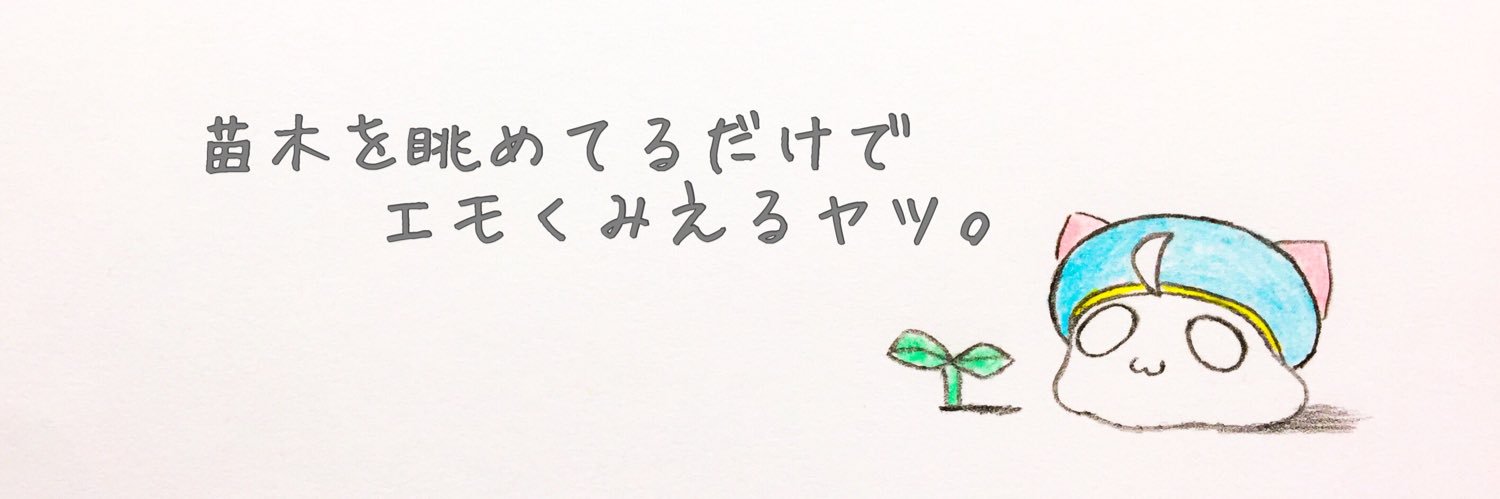 苗木を眺めてるだけで
エモくみえるヤツ。